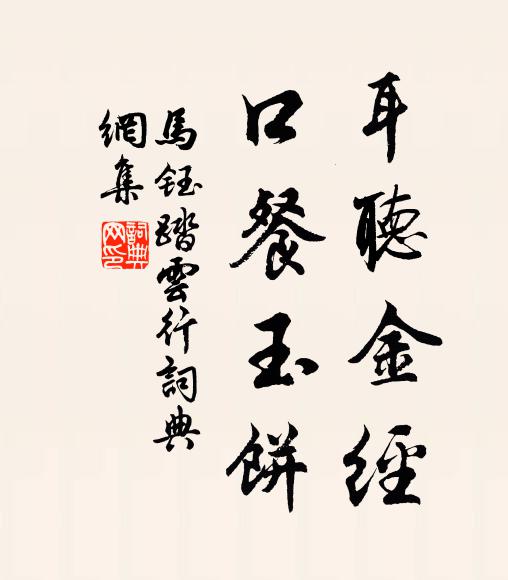 耳聽金經
口餐玉餅
馬鈺踏雲行詞典
網集
詞典
网印